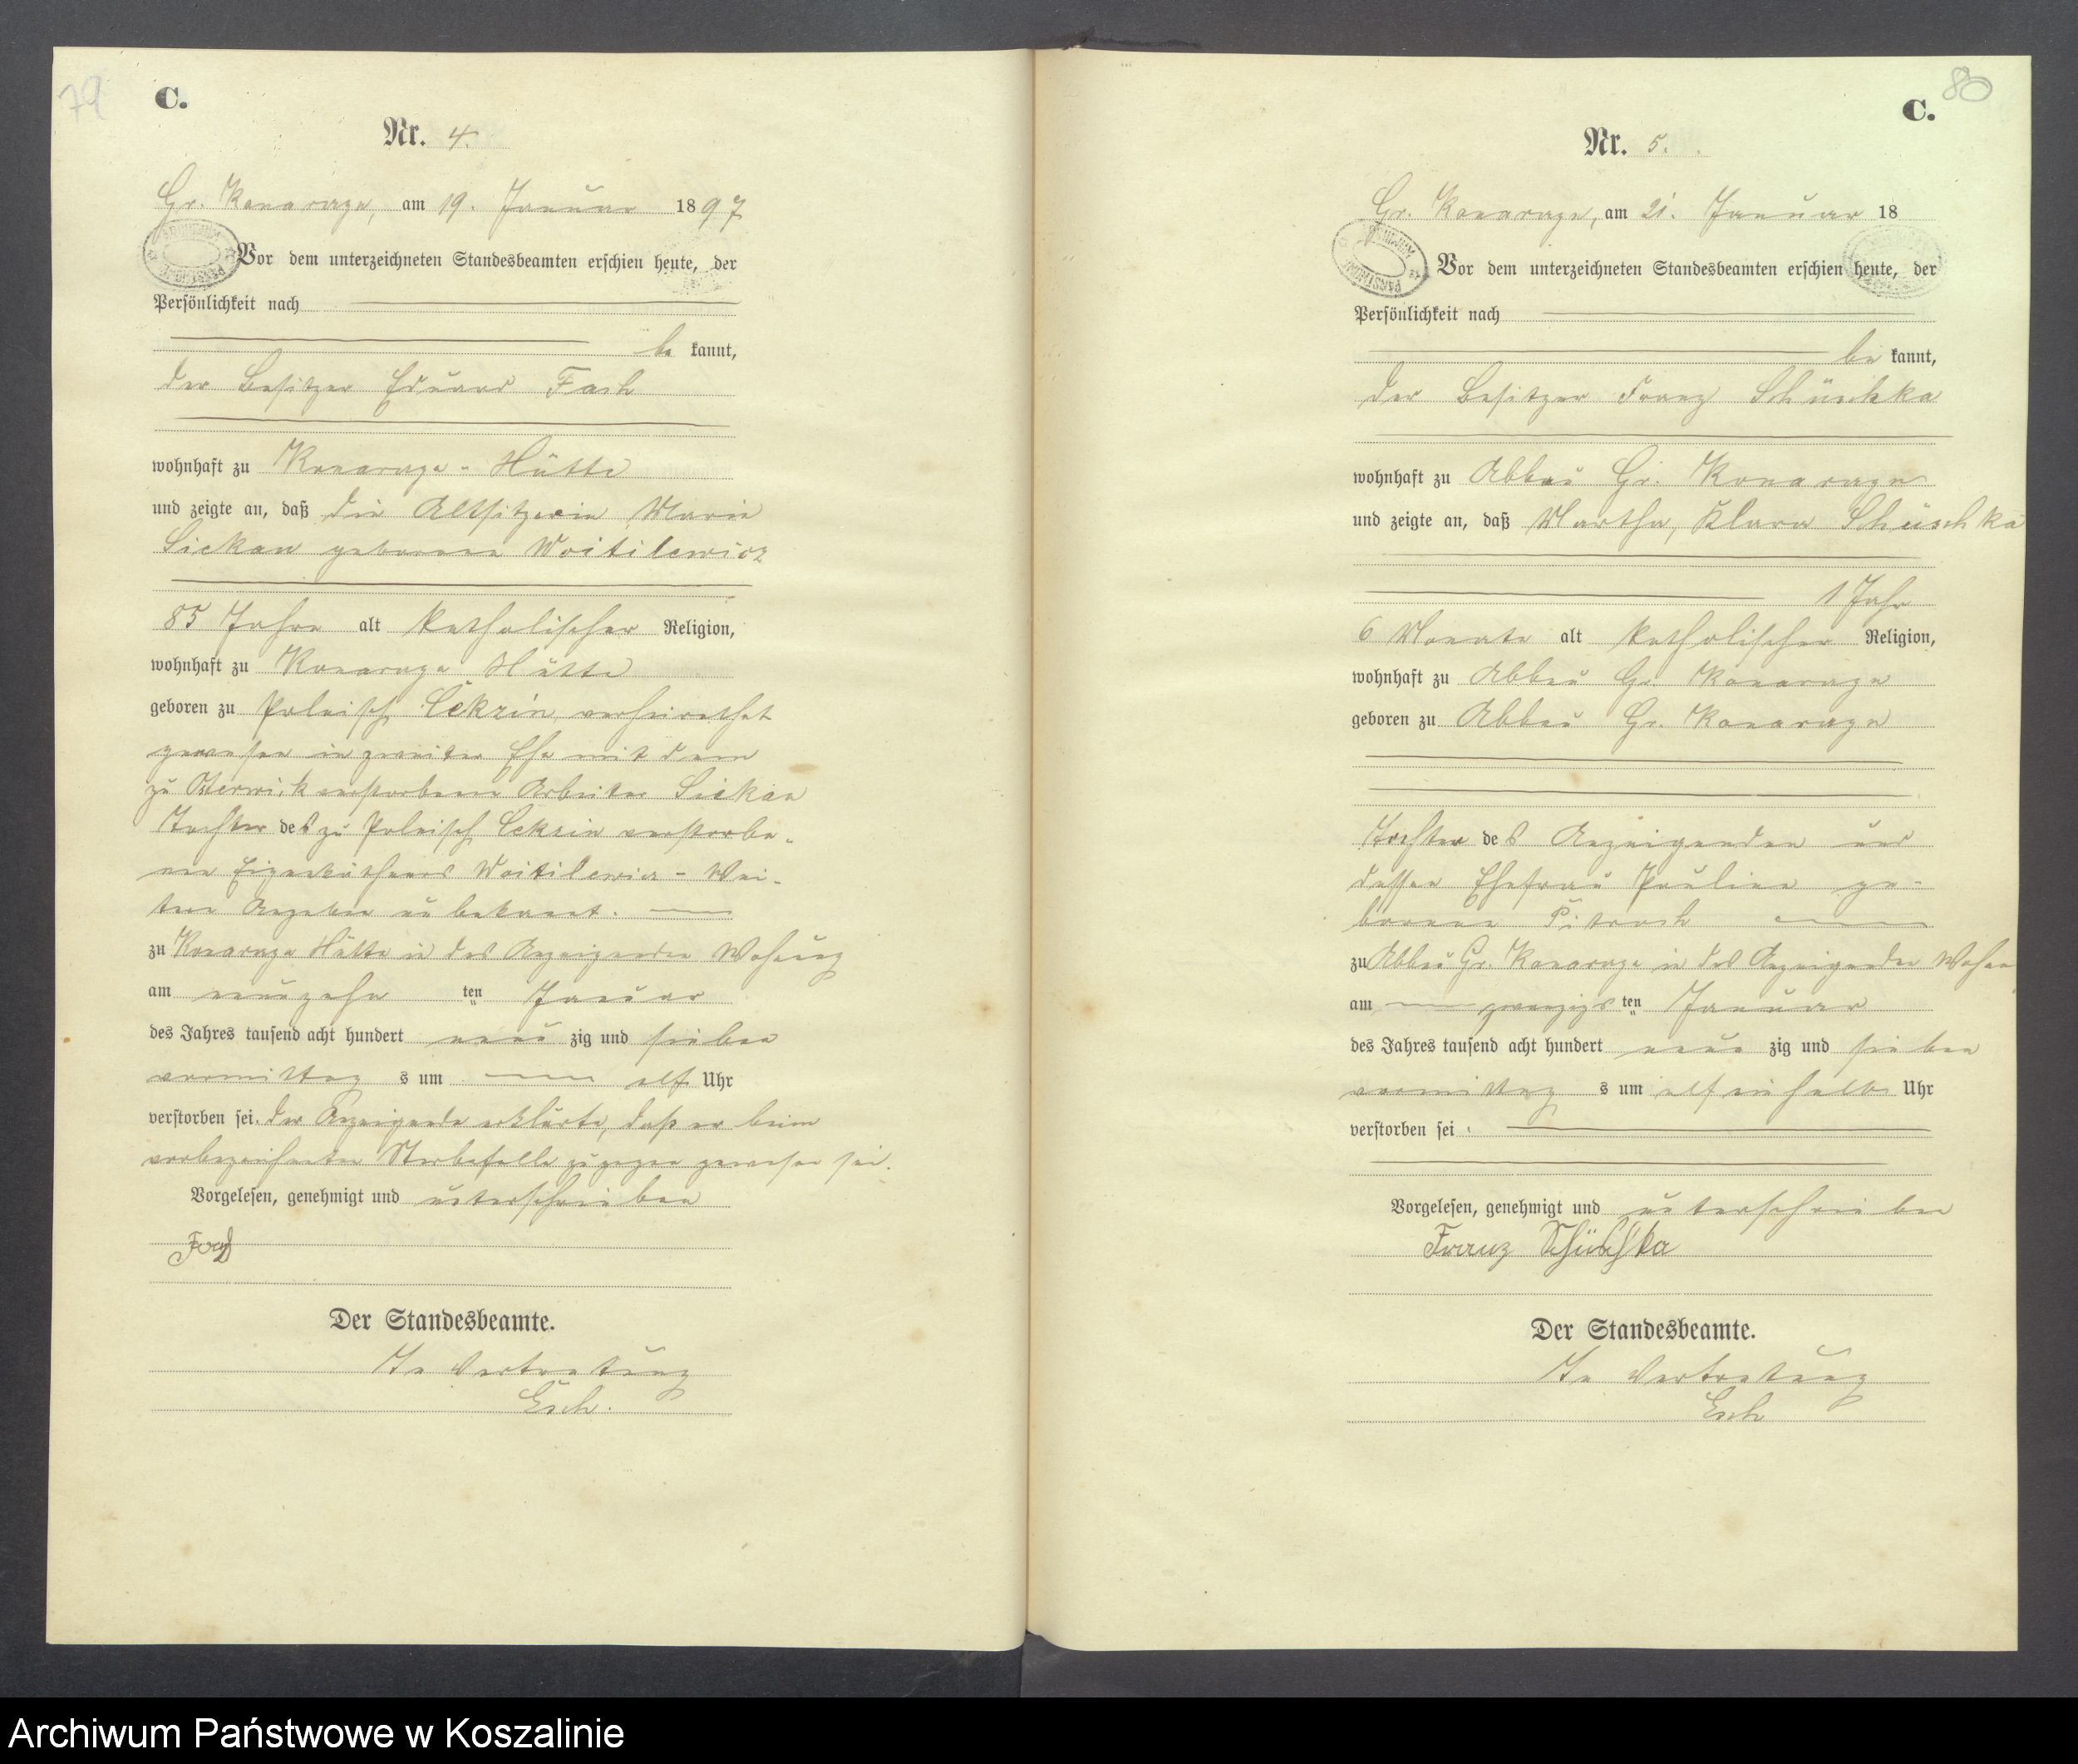 79
C.
Nr. 4.
Gr. Konarczyn, am 19. Januar 1897
Vor dem unterzeichneten Standesbeamten erschien heute, der
Persönlichkeit nach
be kannt,
der Besitzer Eduard
wohnhaft zu Hütte
und zeigte an, daß die Altsitzerin Marie
geborene Woitilewicz
85 Jahre alt katholischer Religion,
wohnhaft zu Hütte
geboren zu Polnisch Cekzin, verheirathet
gewesen in zweiter Ehe mit dem
zu Osterwick verstorbenen Arbeiter
Tochter des zu Polnisch Cekzin verstorbe-
nen Eigenkäthners Woitilewicz - Wei-
tere Angaben unbekannt.
zu Hütte in des Anzeigenden Wohnung
am neunzehn ten Januar
des Jahres tausend acht hundert neun zig und sieben
vormittag s um elf Uhr
verstorben sei. Der Anzeigende erklärte, daß er beim
vorbezeichneten Sterbefalle zugegen gewesen sei.
Vorgelesen, genehmigt und unterschrieben
Der Standesbeamte.
In Vertretung
Esch.
80
C.
Nr. 5.
Gr. Konarczyn, am 21. Januar 18
Vor dem unterzeichneten Standesbeamten erschien heute, der
Persönlichkeit nach
be kannt,
der Besitzer Franz Schüschka
wohnhaft zu Abbau Gr. Konarczyn
und zeigte an, daß Martha, Klara Schüschka
1 Jahr
6 Monate alt katholischer Religion,
wohnhaft zu Abbau Gr. Konarczyn
geboren zu Abbau Gr. Konarczyn
Tochter des Anzeigenden und
dessen Ehefrau Pauline ge-
borene
zu Abbau Gr. Konarczyn in des Anzeigenden Wohnu
am zwanzigs ten Januar
des Jahres tausend acht hundert neun zig und sieben
vormittag s um elf einhalb Uhr
verstorben sei.
Vorgelesen, genehmigt und unterschrieben
Franz Schüschka
Der Standesbeamte.
In Vertretung
Esch
Archiwum Państwowe w Koszalinie